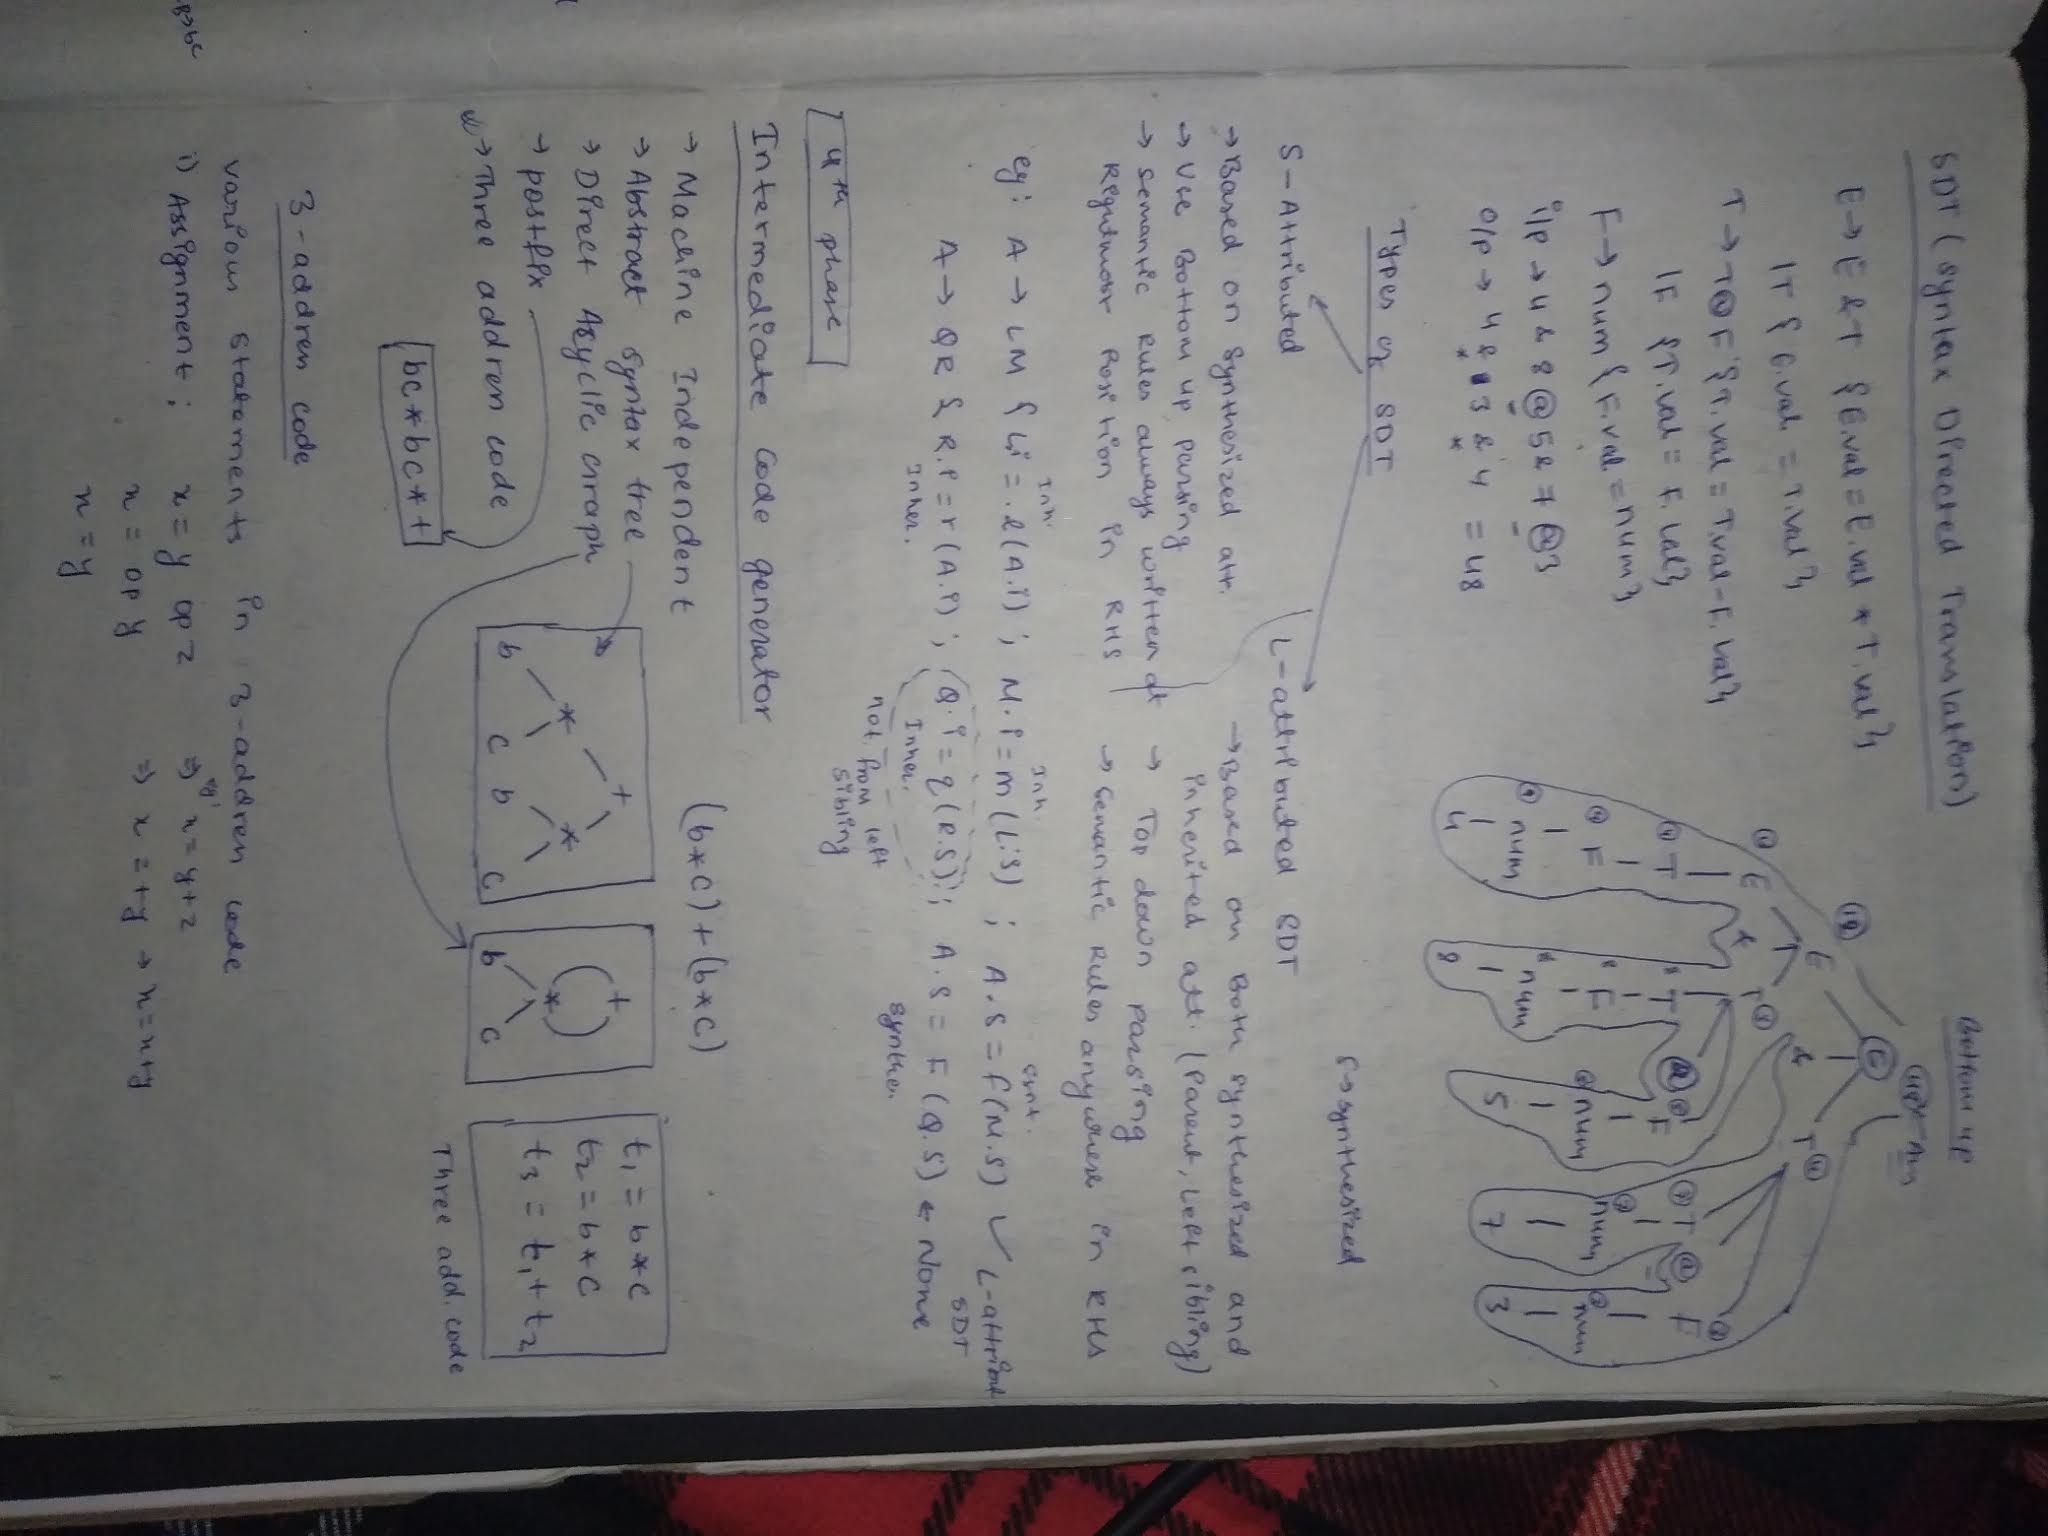 SDT (Syntax Directed Translation)
E → E & T {E.val = E.val * T.val}
|T {E.val = T.val}
T → T@F {T.val = T.val - F.val}
|F {T.val = F.val}
F → num {F.val = num}
i/p → 4 & 8 @ 5 & 7 @ 3
o/p → 4 & 3 & 4 = 48
* *
Bottom up
48 Ans
E
12
E & T 4
4 E & T 3
4 T 8 T @ 5 F 7 T @ 3 F
4 F 8 F 5 num 7 num 3 num
4 num 8 num 5 7 3
4 8
Types of SDT
S → synthesized
S - Attributed
→ Based on Synthesized att.
→ Use Bottom up parsing
→ Semantic Rules always written at
Rightmost Position in RHS
L - attributed SDT
→ Based on Both synthesized and
inherited att. (Parent, Left sibling)
→ Top down parsing
→ Semantic Rules anywhere in RHS
Inh. Inh. synt.
eg: A → LM { L.i = l(A.i) ; M.i = m(L.S) ; A.S = f(M.S) ✓ L-attribut
SDT
A → QR { R.i = r(A.i) ; Q.i = q(R.S) ; A.S = F(Q.S) ← None
Inher. Inher. synthe.
not from left
sibling
4th phase
Intermediate Code generator
→ Machine Independent
→ Abstract syntax tree
→ Direct Asyclic Graph
→ postfix
→ Three addren code
bc*bc*+
(b*c)+(b*c)
+
* *
b c b c
+
*
b c
t1 = b*c
t2 = b*c
t3 = t1 + t2
Three add. code
3-addren code
various statements in 3-addren code
i) Assignment : x = y op z ⇒ eg: x = y+z
x = op y ⇒ x = +y → x = x+y
x = y
B→bc